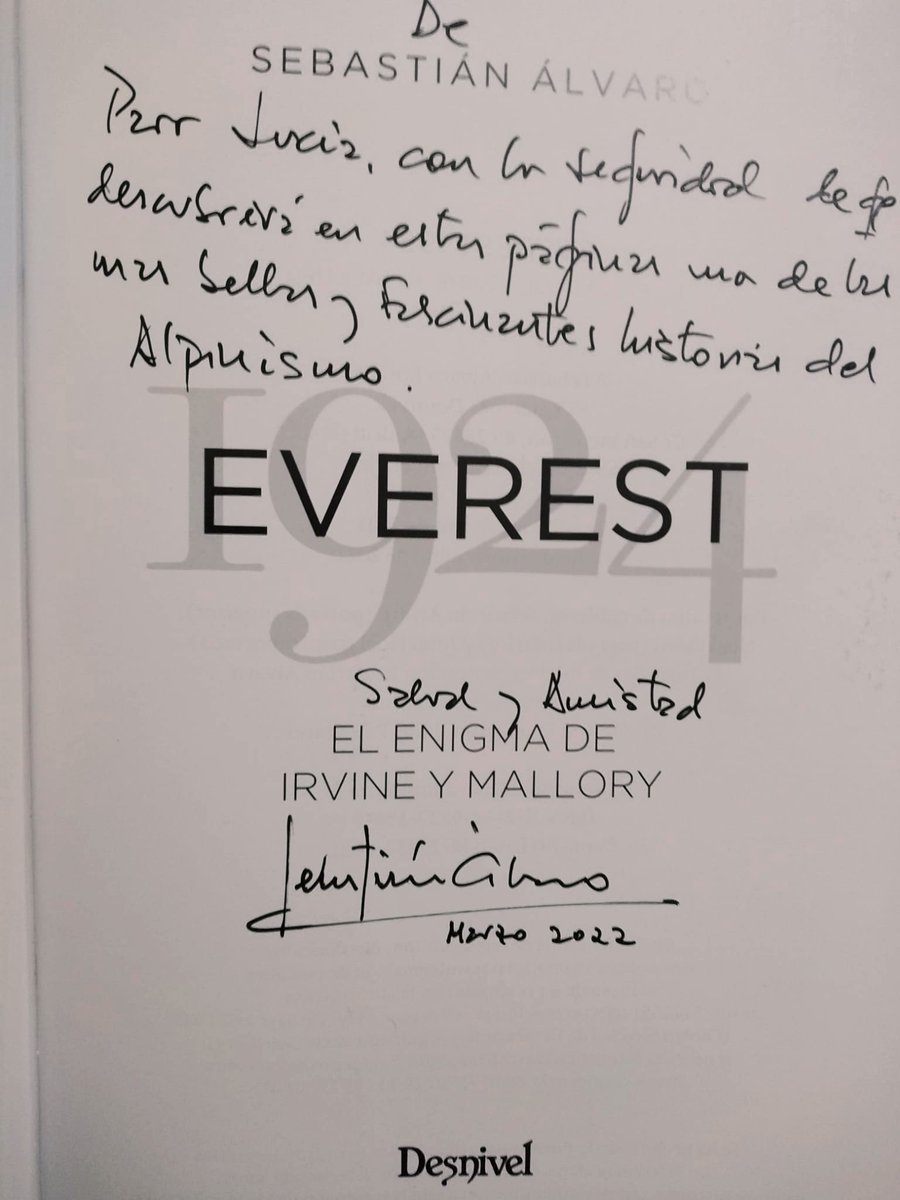 De
SEBASTIÁN ÁLVARO
Para Lucía, con la seguridad de que
descubrirá en estas páginas una de las
mas bellas y fascinantes historias del
Alpinismo.
1924
EVEREST
Salud y Amistad
EL ENIGMA DE
IRVINE Y MALLORY
Sebastián Álvaro
Marzo 2022
Desnivel